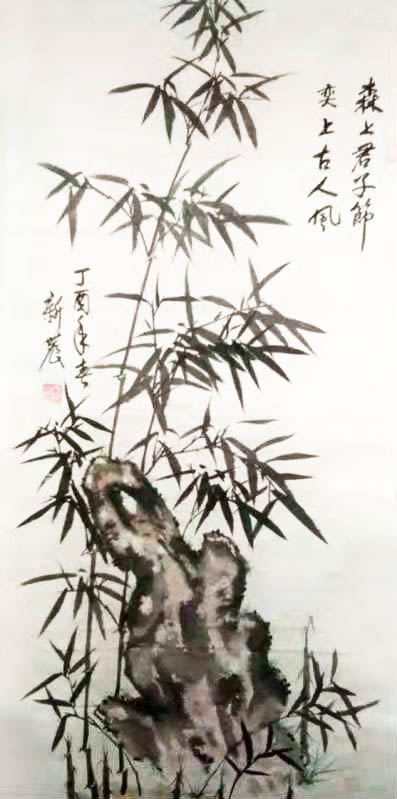 森々君子節
奕々古人風
丁酉年春
新